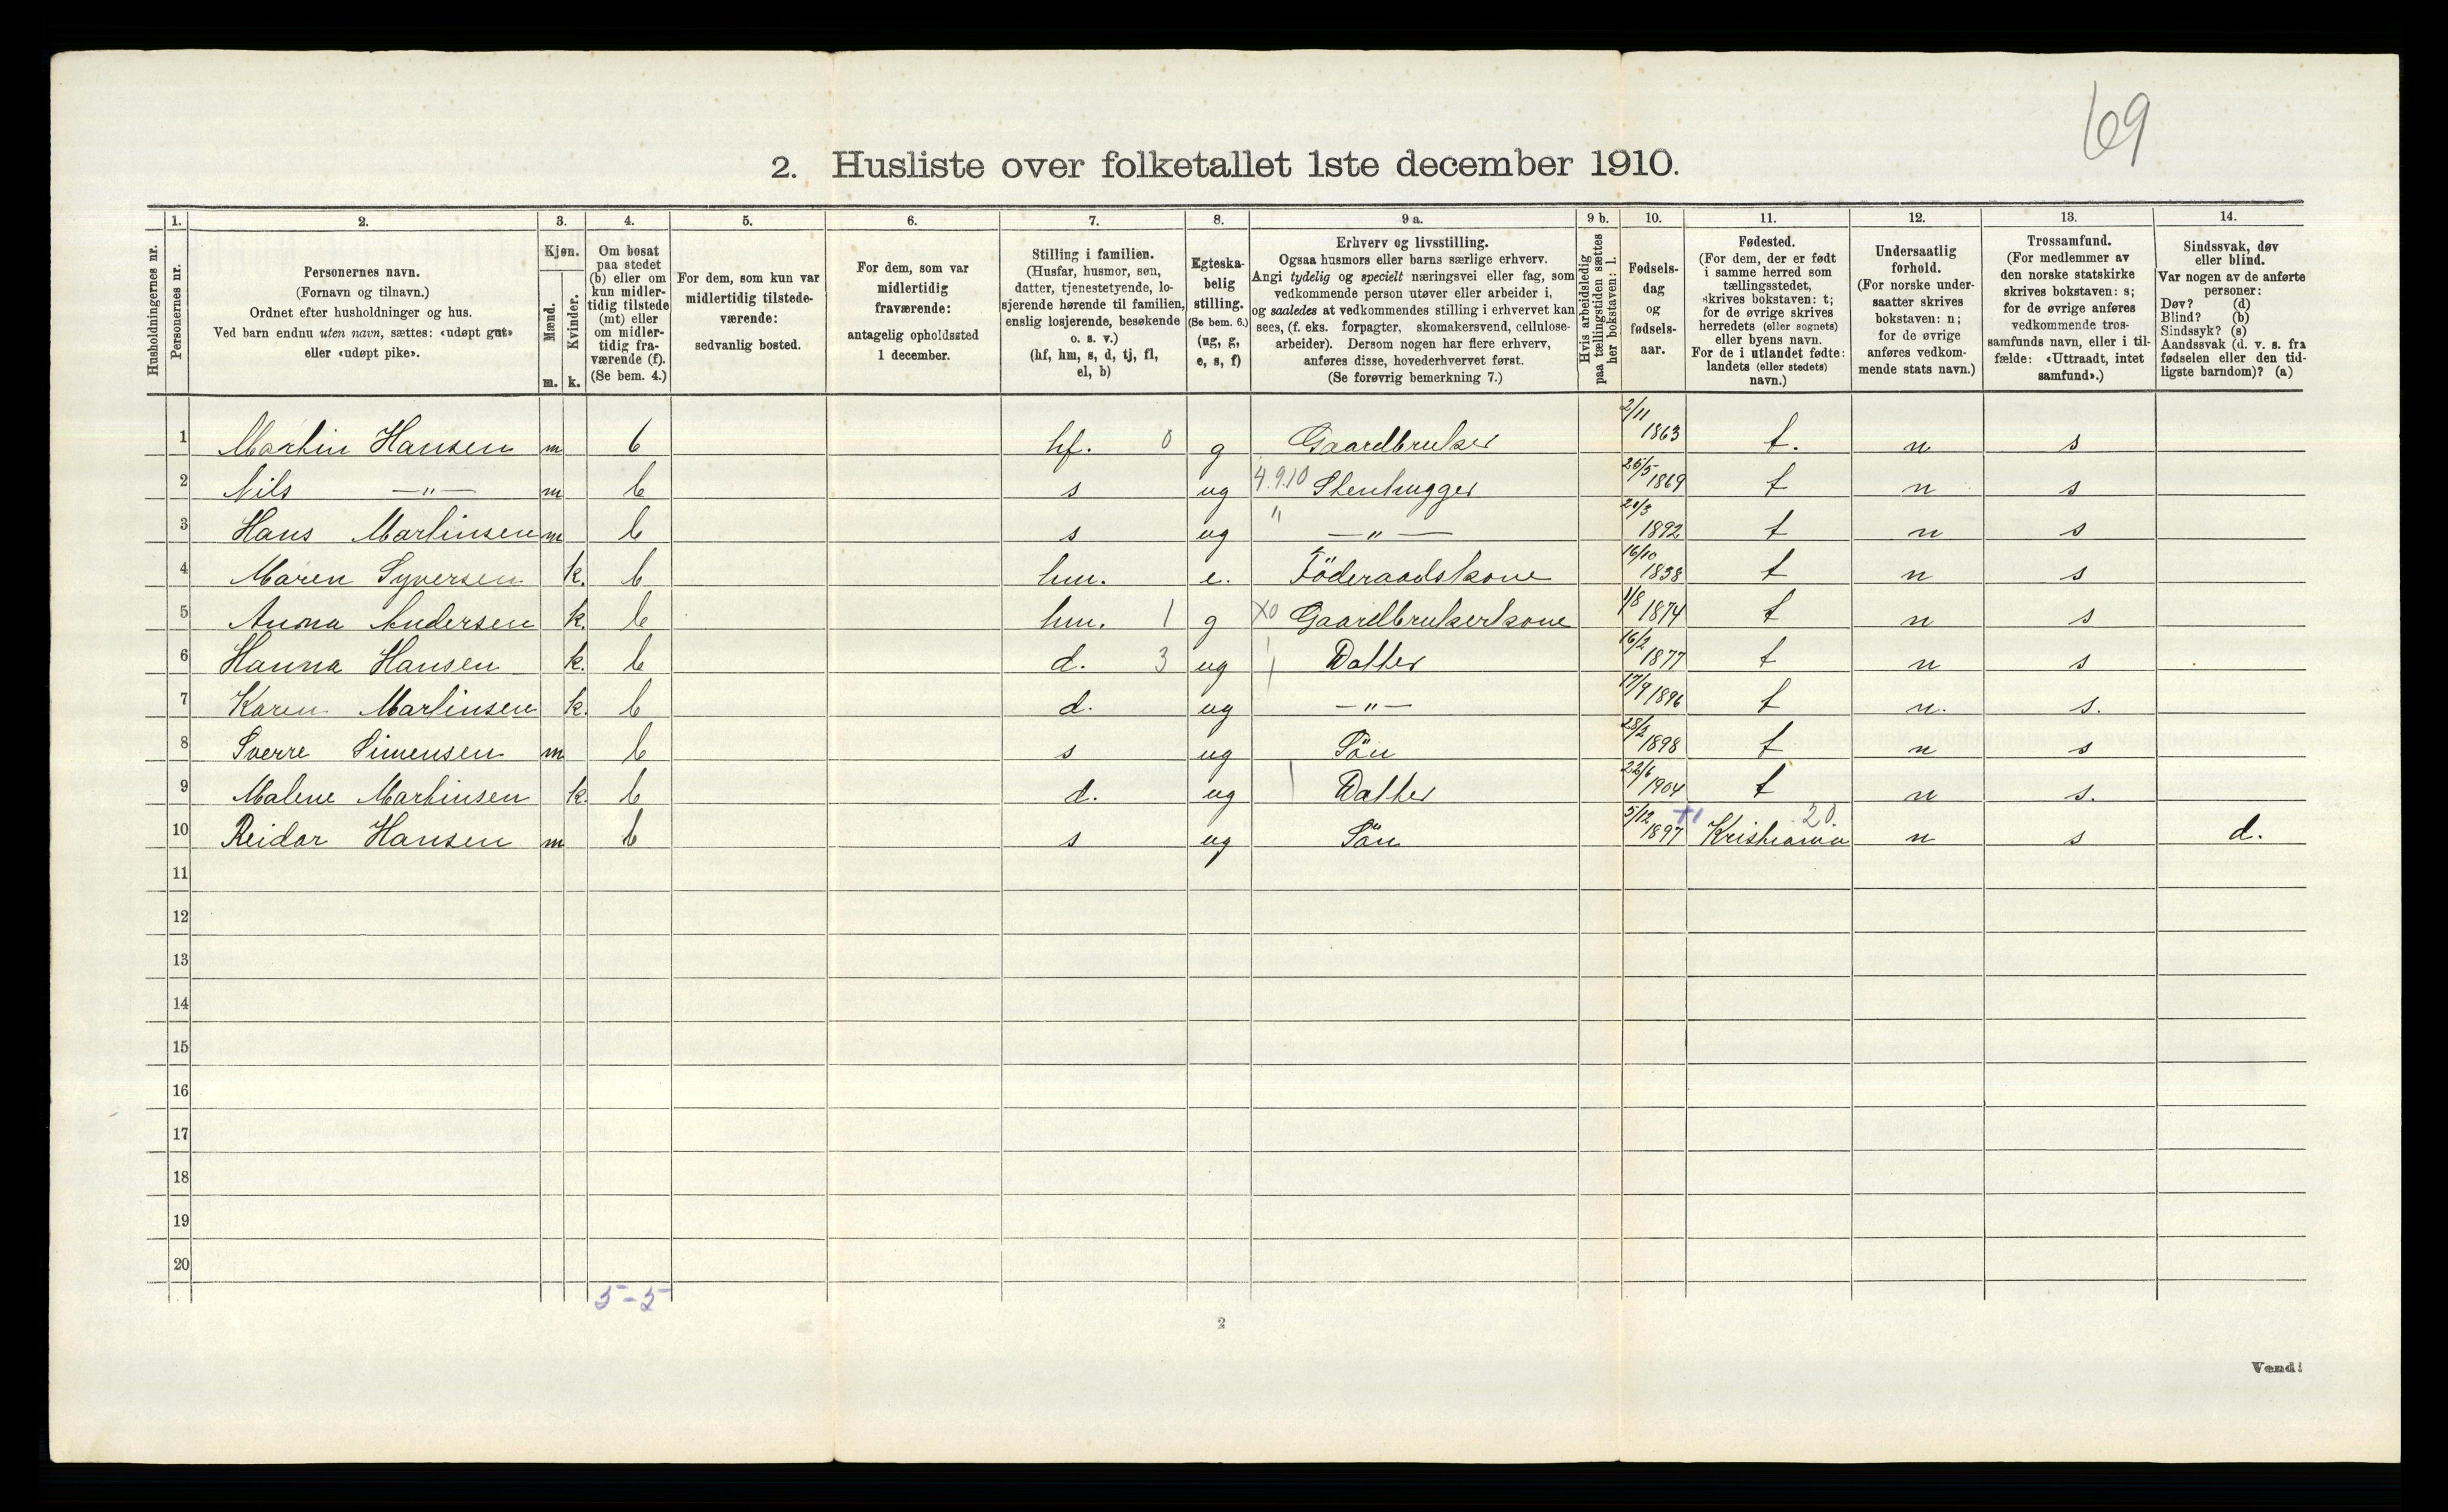 69
2. Husliste over folketallet 1ste december 1910.
1. 2. 3. 4. 5. 6. 7. 8. 9 a. 9 b. 10. 11. 12. 13. 14.
Husholdningernes nr.
Personernes nr.
Personernes navn.
(Fornavn og tilnavn.)
Ordnet efter husholdninger og hus.
Ved barn endnu uten navn, sættes: «udøpt gut»
eller «udøpt pike».
Kjøn.
Mænd.
Kvinder.
m. k.
Om bosat
paa stedet
(b) eller om
kun midler-
tidig tilstede
(mt) eller
om midler-
tidig fra-
værende (f).
(Se bem. 4.)
For dem, som kun var
midlertidig tilstede-
værende:
sedvanlig bosted.
For dem, som var
midlertidig
fraværende:
antagelig opholdssted
1 december.
Stilling i familien.
(Husfar, husmor, søn,
datter, tjenestetyende, lo-
sjerende hørende til familien,
enslig losjerende, besøkende
o. s. v.)
(hf, hm, s, d, tj, fl,
el, b)
Egteska-
belig
stilling.
(Se bem. 6.)
(ug, g,
e, s, f)
Erhverv og livsstilling.
Ogsaa husmors eller barns særlige erhverv.
Angi tydelig og specielt næringsvei eller fag, som
vedkommende person utøver eller arbeider i,
og saaledes at vedkommendes stilling i erhvervet kan
sees, (f. eks. forpagter, skomakersvend, cellulose-
arbeider). Dersom nogen har flere erhverv,
anføres disse, hovederhvervet først.
(Se forøvrig bemerkning 7.)
Hvis arbeidsledig
paa tællingstiden sættes
her bokstaven: l.
Fødsels-
dag
og
fødsels-
aar.
Fødested.
(For dem, der er født
i samme herred som
tællingsstedet,
skrives bokstaven: t;
for de øvrige skrives
herredets (eller sognets)
eller byens navn.
For de i utlandet fødte:
landets (eller stedets)
navn.)
Undersaatlig
forhold.
(For norske under-
saatter skrives
bokstaven: n;
for de øvrige
anføres vedkom-
mende stats navn.)
Trossamfund.
(For medlemmer av
den norske statskirke
skrives bokstaven: s;
for de øvrige anføres
vedkommende tros-
samfunds navn, eller i til-
fælde: «Uttraadt, intet
samfund».)
Sindssvak, døv
eller blind.
Var nogen av de anførte
personer:
Døv? (d)
Blind? (b)
Sindssyk? (s)
Aandssvak (d. v. s. fra
fødselen eller den tid-
ligste barndom)? (a)
1 Martin Hansen m b hf. 0 g Gaardbruker 2/11 1863 t. n s
2 Nils —"— m b s ug 4.9.10 Stenhugger 25/5 1869 t n s
3 Hans Martinsen m b s ug " —"— 20/3 1892 t n s
4 Maren Syversen k. b hm. e. Föderaadskone 16/10 1838 t n s
5 Anna Andersen k. b hm. 1 g X0 Gaardbrukerkone 1/8 1874 t n s
6 Hanna Hansen k. b d. 3 ug Datter 16/2 1877 t n s
7 Karen Martinsen k. b d. ug —"— 17/9 1896 t n. s.
8 Sverre Simensen m b s ug Sön 28/2 1898 t n s
9 Malene Martinsen k. b d. ug Datter 22/6 1904 t n s.
10 Reidar Hansen m b s ug Sön 5/12 1897 Kristiania 20. n s d.
11
12
13
14
15
16
17
18
19
20
5-5
2
Vend!